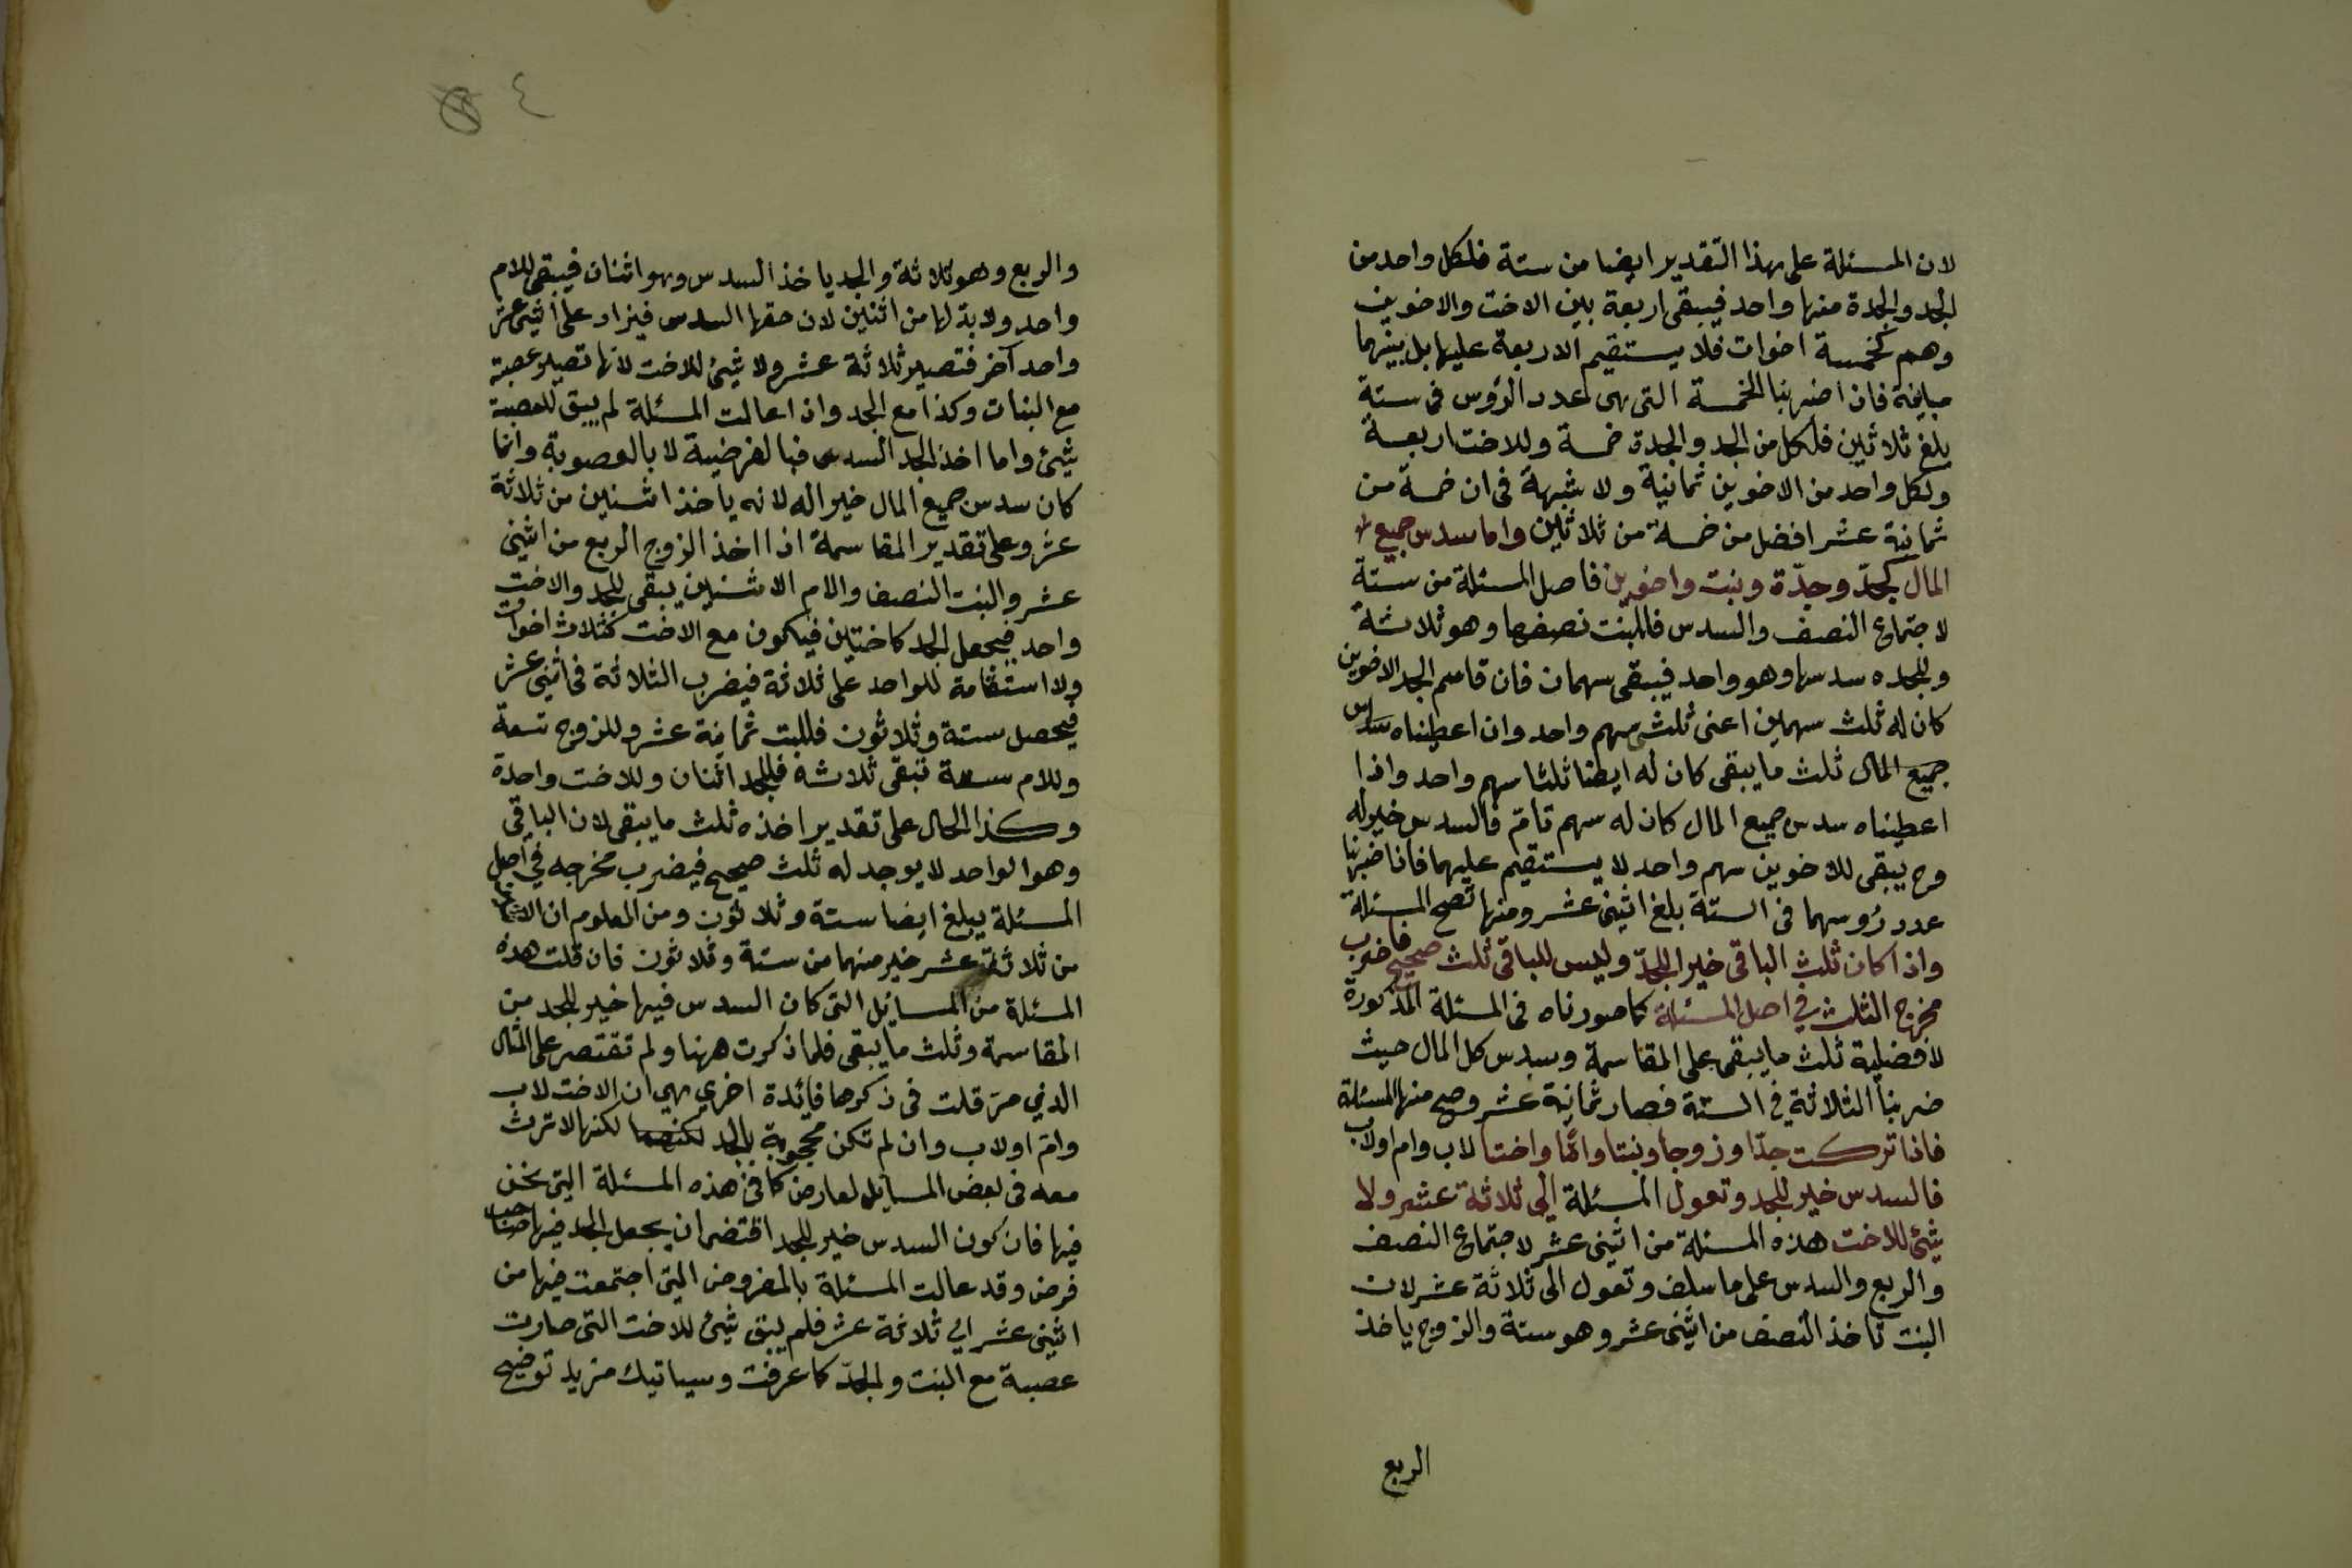 لان المسئلة على هذا التقدير ايضا من ستة فلكل واحد من
الجد والجدة منها واحد فيبقى اربعة بين الاخت والاخوين
وهم كخمسة اخوات فلا يستقيم الاربعة عليها بل بينهما
مباينة فان اضربنا الخمسة التى هى عدد الرؤس فى ستة
بلغ ثلاثين فلكل من الجد والجدة خمسة وللاخت اربعة
ولكل واحد من الاخوين ثمانية ولا شبهة فى ان خمسة من
ثمانية عشر افضل من خمسة من ثلاثين واما سدس جميع
المال كجدّ وجدّة وبنت واخوين فاصل المسئلة من ستة
لاجتماع النصف والسدس فللبنت نصفها وهو ثلاثة
وللجده سدسها وهو واحد فيبقى سهمان فان قاسم الجد الاخوين
كان له ثلث سهمين اعنى ثلثى سهم واحد وان اعطيناه سدس
جميع المال ثلث ما يبقى كان له ايضا ثلثا سهم واحد واذا
اعطيناه سدس جميع المال كان له سهم تامّ فالسدس خير له
وح يبقى للاخوين سهم واحد لا يستقيم عليهما فاذا ضربنا
عدد رؤسهما فى الستة بلغ اثنى عشر ومنها تصح المسئلة
واذا كان ثلث الباقى خيرا للجدّ وليس للباقى ثلث صحيح فاضرب
مخرج الثلث في اصل المسئلة كما صورناه فى المسئلة المذكورة
لافضلية ثلث ما يبقى على المقاسمة وسدس كل المال حيث
ضربنا الثلاثة في الستة فصار ثمانية عشر وصح منها المسئلة
فاذا تركت جدّا وزوجا وبنتا وامّا واختا لاب وام اولاب
فالسدس خير للجد وتعول المسئلة الى ثلاثة عشر ولا
شيئ للاخت هذه المسئلة من اثنى عشر لاجتماع النصف
والربع والسدس على ما سلف وتعول الى ثلاثة عشر لان
البنت تاخذ النصف من اثنى عشر وهو ستة والزوج ياخذ
الربع
٤
والربع وهو ثلاثة والجد ياخذ السدس وهو اثنان فيبقى للام
واحد ولا بد لها من اثنين لان حقها السدس فيزاد على اثنى عشر
واحد آخر فتصير ثلاثة عشر ولا شيئ للاخت لانها تصير عصبة
مع البنات وكذا مع الجد واذا عالت المسئلة لم يبق للعصبة
شيئ واما اخذ الجد السدس فبالفرضية لا بالعصوبة وانما
كان سدس جميع المال خيرا له لانه يأخذ اثنين من ثلاثة
عشر وعلى تقدير المقاسمة اذا اخذ الزوج الربع من اثنى
عشر والبنت النصف والام الاثنين يبقى للجد والاخت
واحد فيجعل الجد كاختين فيكون مع الاخت كثلاث اخوات
ولا استقامة للواحد على ثلاثة فيضرب الثلاثة فى اثنى عشر
فيحصل ستة وثلاثون فللبنت ثمانية عشر وللزوج تسعة
وللام ستة تبقى ثلاثة فللجد اثنان وللاخت واحدة
وكذا الحال على تقدير اخذه ثلث ما يبقى لان الباقى
وهو الواحد لا يوجد له ثلث صحيح فيضرب مخرجه في اصل
المسئلة يبلغ ايضا ستة وثلاثون ومن المعلوم ان الاثنين
من ثلاثة عشر خير منهما من ستة وثلاثون فان قلت هذه
المسئلة من المسايل التى كان السدس فيها خير للجد من
المقاسمة وثلث ما يبقى فلما ذكرت ههنا ولم تقتصر على المثال
الذي مرّ قلت فى ذكرها فائدة اخري هي ان الاخت لاب
وامّ اولاب وان لم تكن محجوبة بالجد لكنها لا ترث
معه فى بعض المسايل لعارض كما فى هذه المسئلة التى نحن
فيها فان كون السدس خير للجد اقتضى ان يجعل الجد فيها صاحب
فرض وقد عالت المسئلة بالفروض التى اجتمعت فيها من
اثنى عشر الي ثلاثة عشر فلم يبق شيئ للاخت التى صارت
عصبة مع البنت والجدّ كما عرفت وسياتيك مزيد توضيح